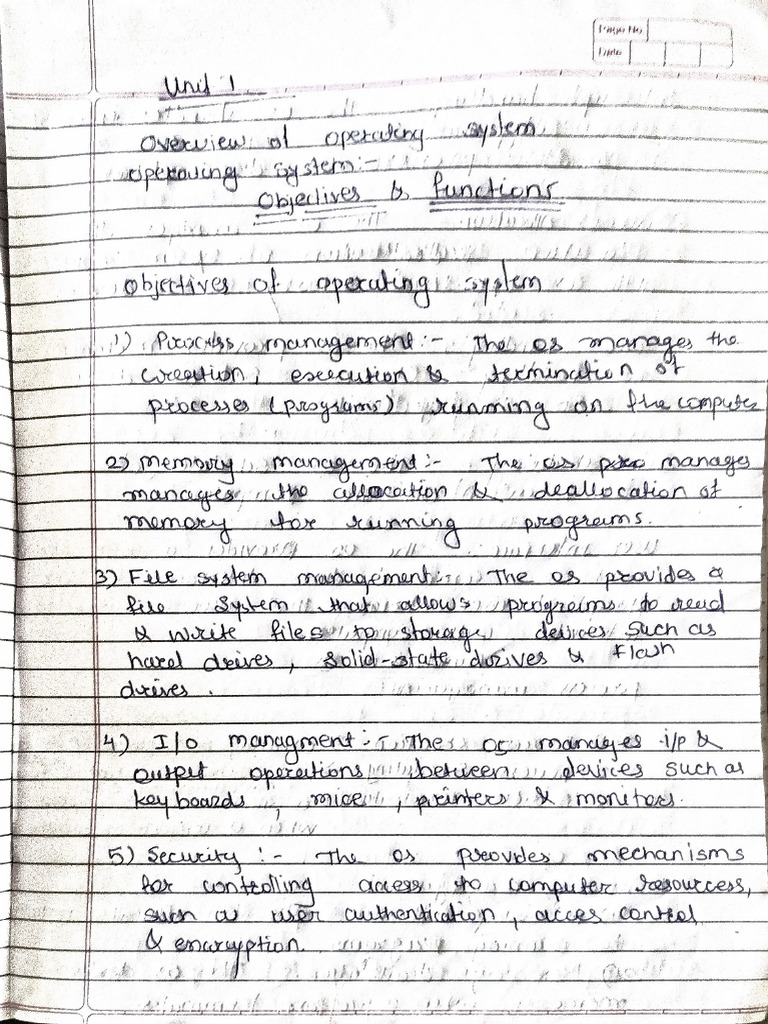 Page No
Date
Unit 1
Overview of operating system
operating system:-
Objectives & functions
Objectives of operating system
1) Process management:- The os manages the
creation, execution & termination of
processes (programs) running on the computer
2) Memory management:- The os manages
manages the allocation & deallocation of
memory for running programs.
3) File system management:- The os provides a
file System that allows programs to read
& write files to storage devices such as
hard drives, solid-state drives & Flash
drives.
4) I/o managment:- The os manages i/p &
output operations between devices such as
keyboards, mice, printers & monitors.
5) Security:- The os provides mechanisms
for controlling access to computer resourcess,
such as user authentication, acces control
& encryption.